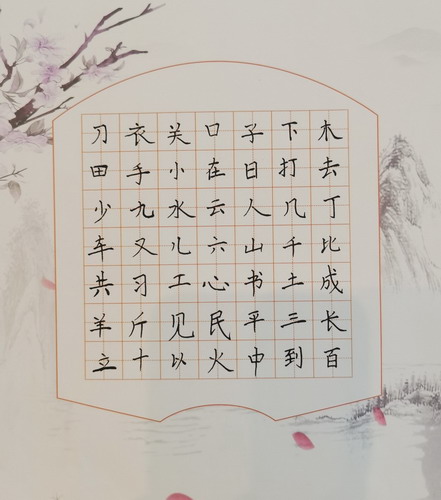 刀衣关口子下木
田手小在日打去
少九水云人几丁
车又儿六山千比
共习工心书土成
羊斤见民平三长
立十以火中到百